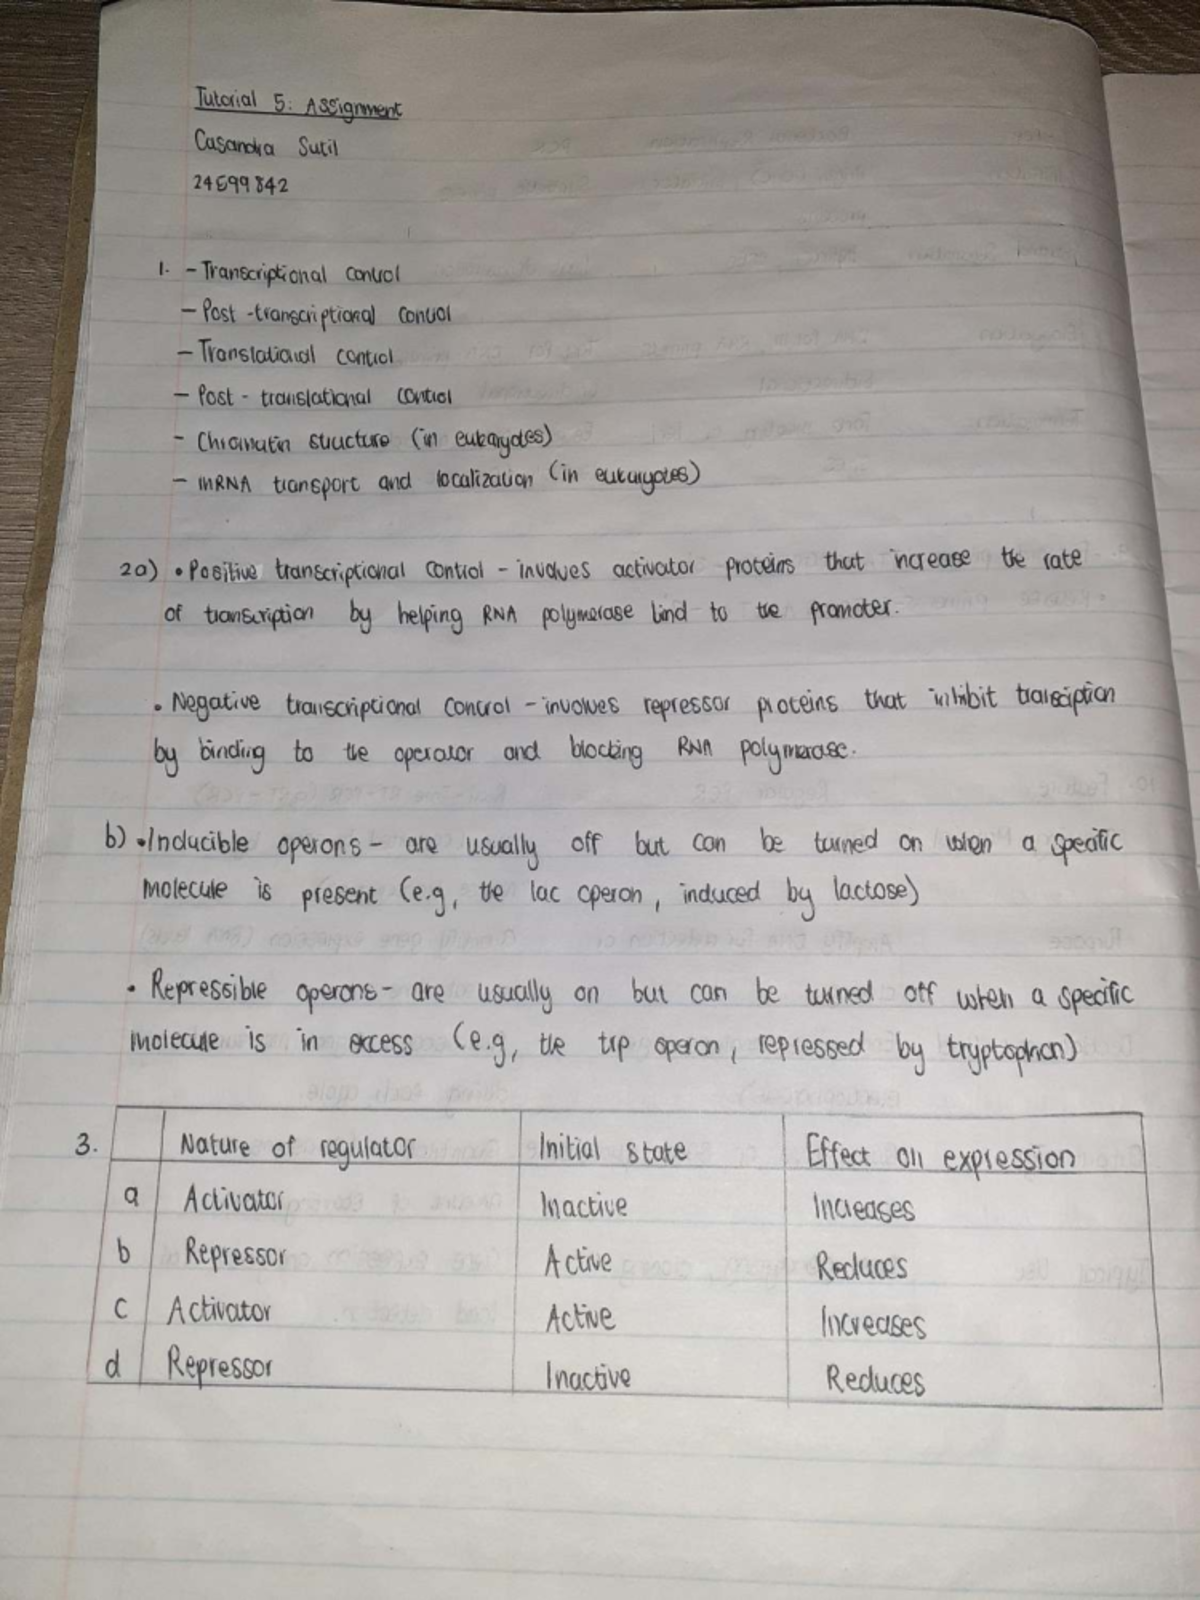 Tutorial 5: Assignment
Casandra Sutil
24599842
1. - Transcriptional control
- Post-transcriptional control
- Translational control
- Post-translational control
- Chromatin structure (in eukaryotes)
- mRNA transport and localization (in eukaryotes)
2a) • Positive transcriptional control - involves activator proteins that increase the rate
of transcription by helping RNA polymerase bind to the promoter.
• Negative transcriptional control - involves repressor proteins that inhibit transcription
by binding to the operator and blocking RNA polymerase.
b) • Inducible operons - are usually off but can be turned on when a specific
molecule is present (e.g, the lac operon, induced by lactose)
• Repressible operons - are usually on but can be turned off when a specific
molecule is in excess (e.g, the trp operon, repressed by tryptophan)
3. Nature of regulator Initial state Effect on expression
a Activator Inactive Increases
b Repressor Active Reduces
c Activator Active Increases
d Repressor Inactive Reduces